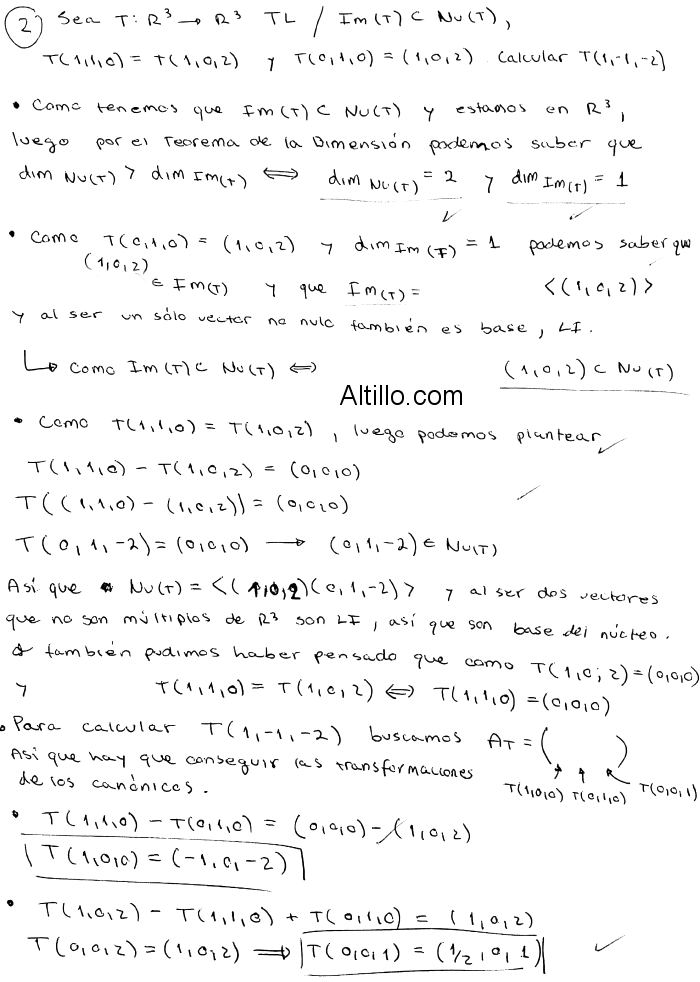 2 Sea T: R³ → R³ TL / Im(T) ⊂ Nu(T),
T(1,1,0) = T(1,0,2) y T(0,1,0) = (1,0,2) Calcular T(1,-1,-2)
• Como tenemos que Im(T) ⊂ Nu(T) y estamos en R³,
luego por el Teorema de la Dimensión podemos saber que
dim Nu(T) > dim Im(T) ⟺ dim Nu(T) = 2 y dim Im(T) = 1
• Como T(0,1,0) = (1,0,2) y dim Im(T) = 1 podemos saber que
(1,0,2) ∈ Im(T) y que Im(T) = <(1,0,2)>
y al ser un sólo vector no nulo también es base, LI.
↳ Como Im(T) ⊂ Nu(T) ⟺ (1,0,2) ⊂ Nu(T)
Altillo.com
• Como T(1,1,0) = T(1,0,2), luego podemos plantear
T(1,1,0) - T(1,0,2) = (0,0,0)
T((1,1,0) - (1,0,2)) = (0,0,0)
T(0,1,-2) = (0,0,0) → (0,1,-2) ∈ Nu(T)
Así que Nu(T) = <(1,0,2)(0,1,-2)> y al ser dos vectores
que no son múltiplos de R³ son LI, así que son base del núcleo.
también pudimos haber pensado que como T(1,0,2) = (0,0,0)
y T(1,1,0) = T(1,0,2) ⟺ T(1,1,0) = (0,0,0)
• Para calcular T(1,-1,-2) buscamos A_T = ( )
Así que hay que conseguir las transformaciones
de los canónicos.
T(1,0,0) T(0,1,0) T(0,0,1)
• T(1,1,0) - T(0,1,0) = (0,0,0) - (1,0,2)
T(1,0,0) = (-1,0,-2)
• T(1,0,2) - T(1,1,0) + T(0,1,0) = (1,0,2)
T(0,0,2) = (1,0,2) ⟹ T(0,0,1) = (1/2, 0, 1)